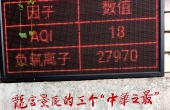 因子 数值
AQI 18
负氧离子 27970
龙宫景区的三个“中华之最”